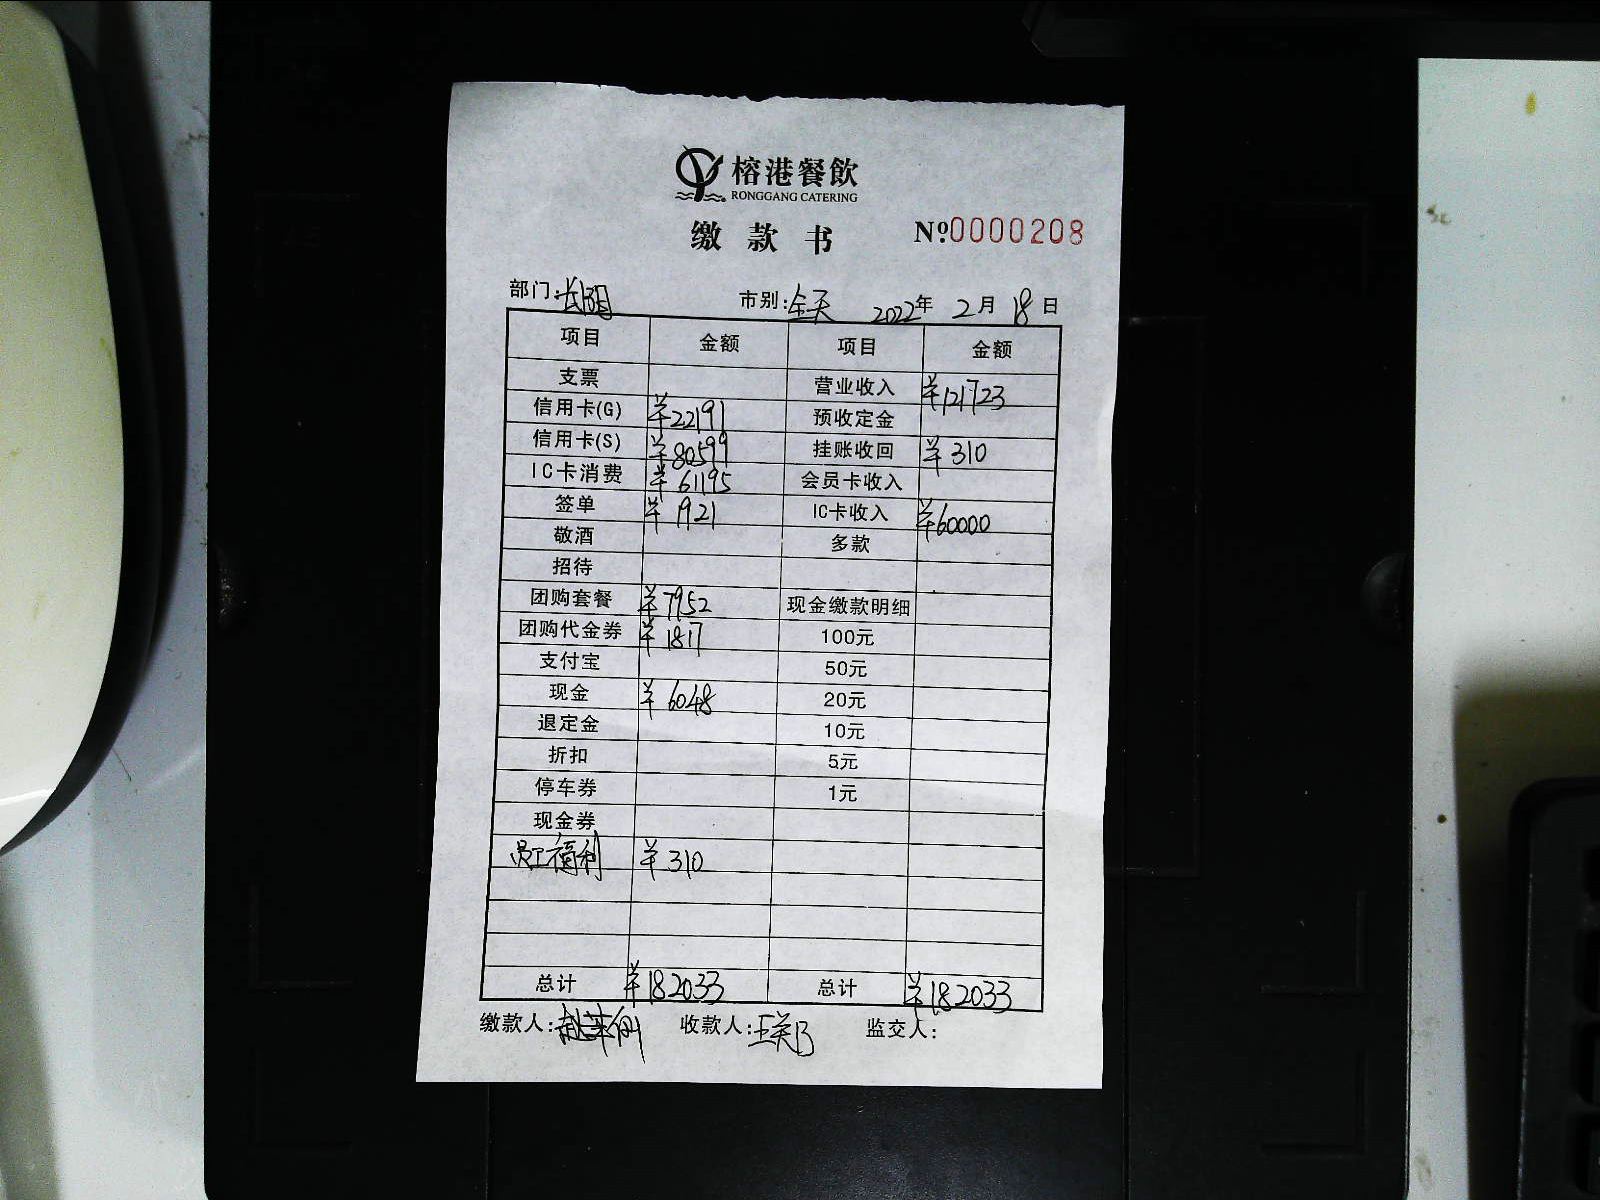 榕港餐飲
RONGGANG CATERING
缴款书 №0000208
部门:长阳 市别:全天 2022年2月18日
项目 金额 项目 金额
支票 营业收入 ¥121723
信用卡(G) ¥22191 预收定金
信用卡(S) ¥80599 挂账收回 ¥310
IC卡消费 ¥61195 会员卡收入
签单 ¥1921 IC卡收入 ¥60000
敬酒 多款
招待
团购套餐 ¥7952 现金缴款明细
团购代金券 ¥1817 100元
支付宝 50元
现金 ¥6048 20元
退定金 10元
折扣 5元
停车券 1元
现金券
员工福利 ¥310
总计 ¥182033 总计 ¥182033
缴款人: 收款人: 监交人: